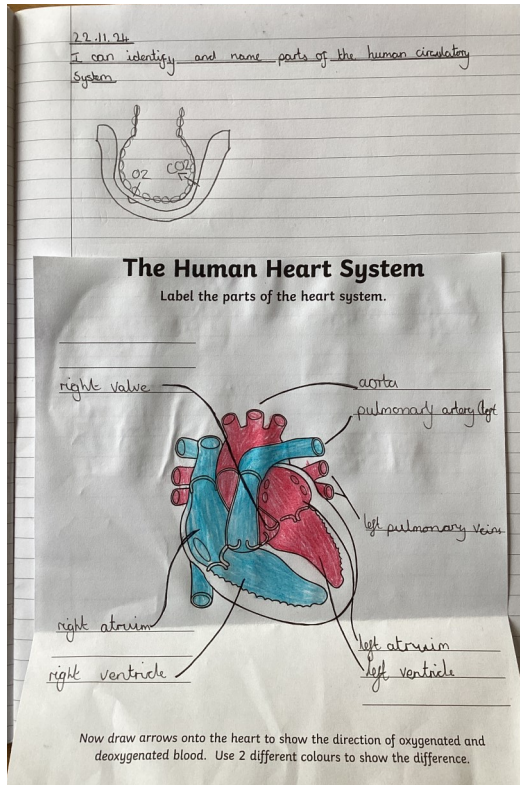 22.11.24
I can identify and name parts of the human circulatory
System
O2
CO2
The Human Heart System
Label the parts of the heart system.
right valve
aorta
pulmonary artery (left
left pulmonary veins
right atruim
left atruim
right ventricle
left ventricle
Now draw arrows onto the heart to show the direction of oxygenated and
deoxygenated blood. Use 2 different colours to show the difference.